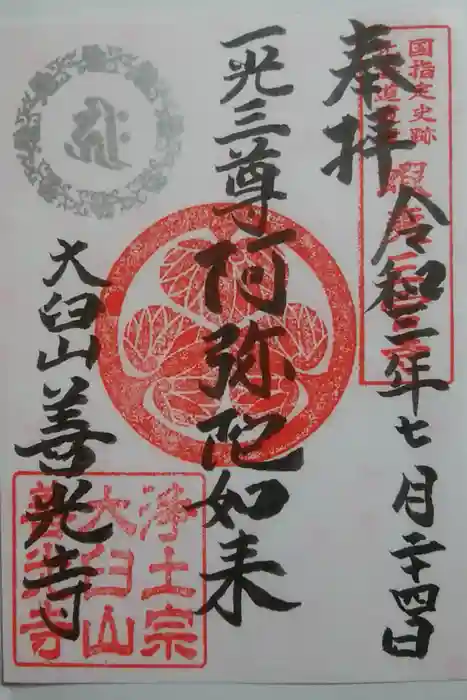 奉拝
令和三年七月二十四日
一光三尊阿弥陀如来
大臼山善光寺
国指定史跡
浄土宗
大臼山
善光寺